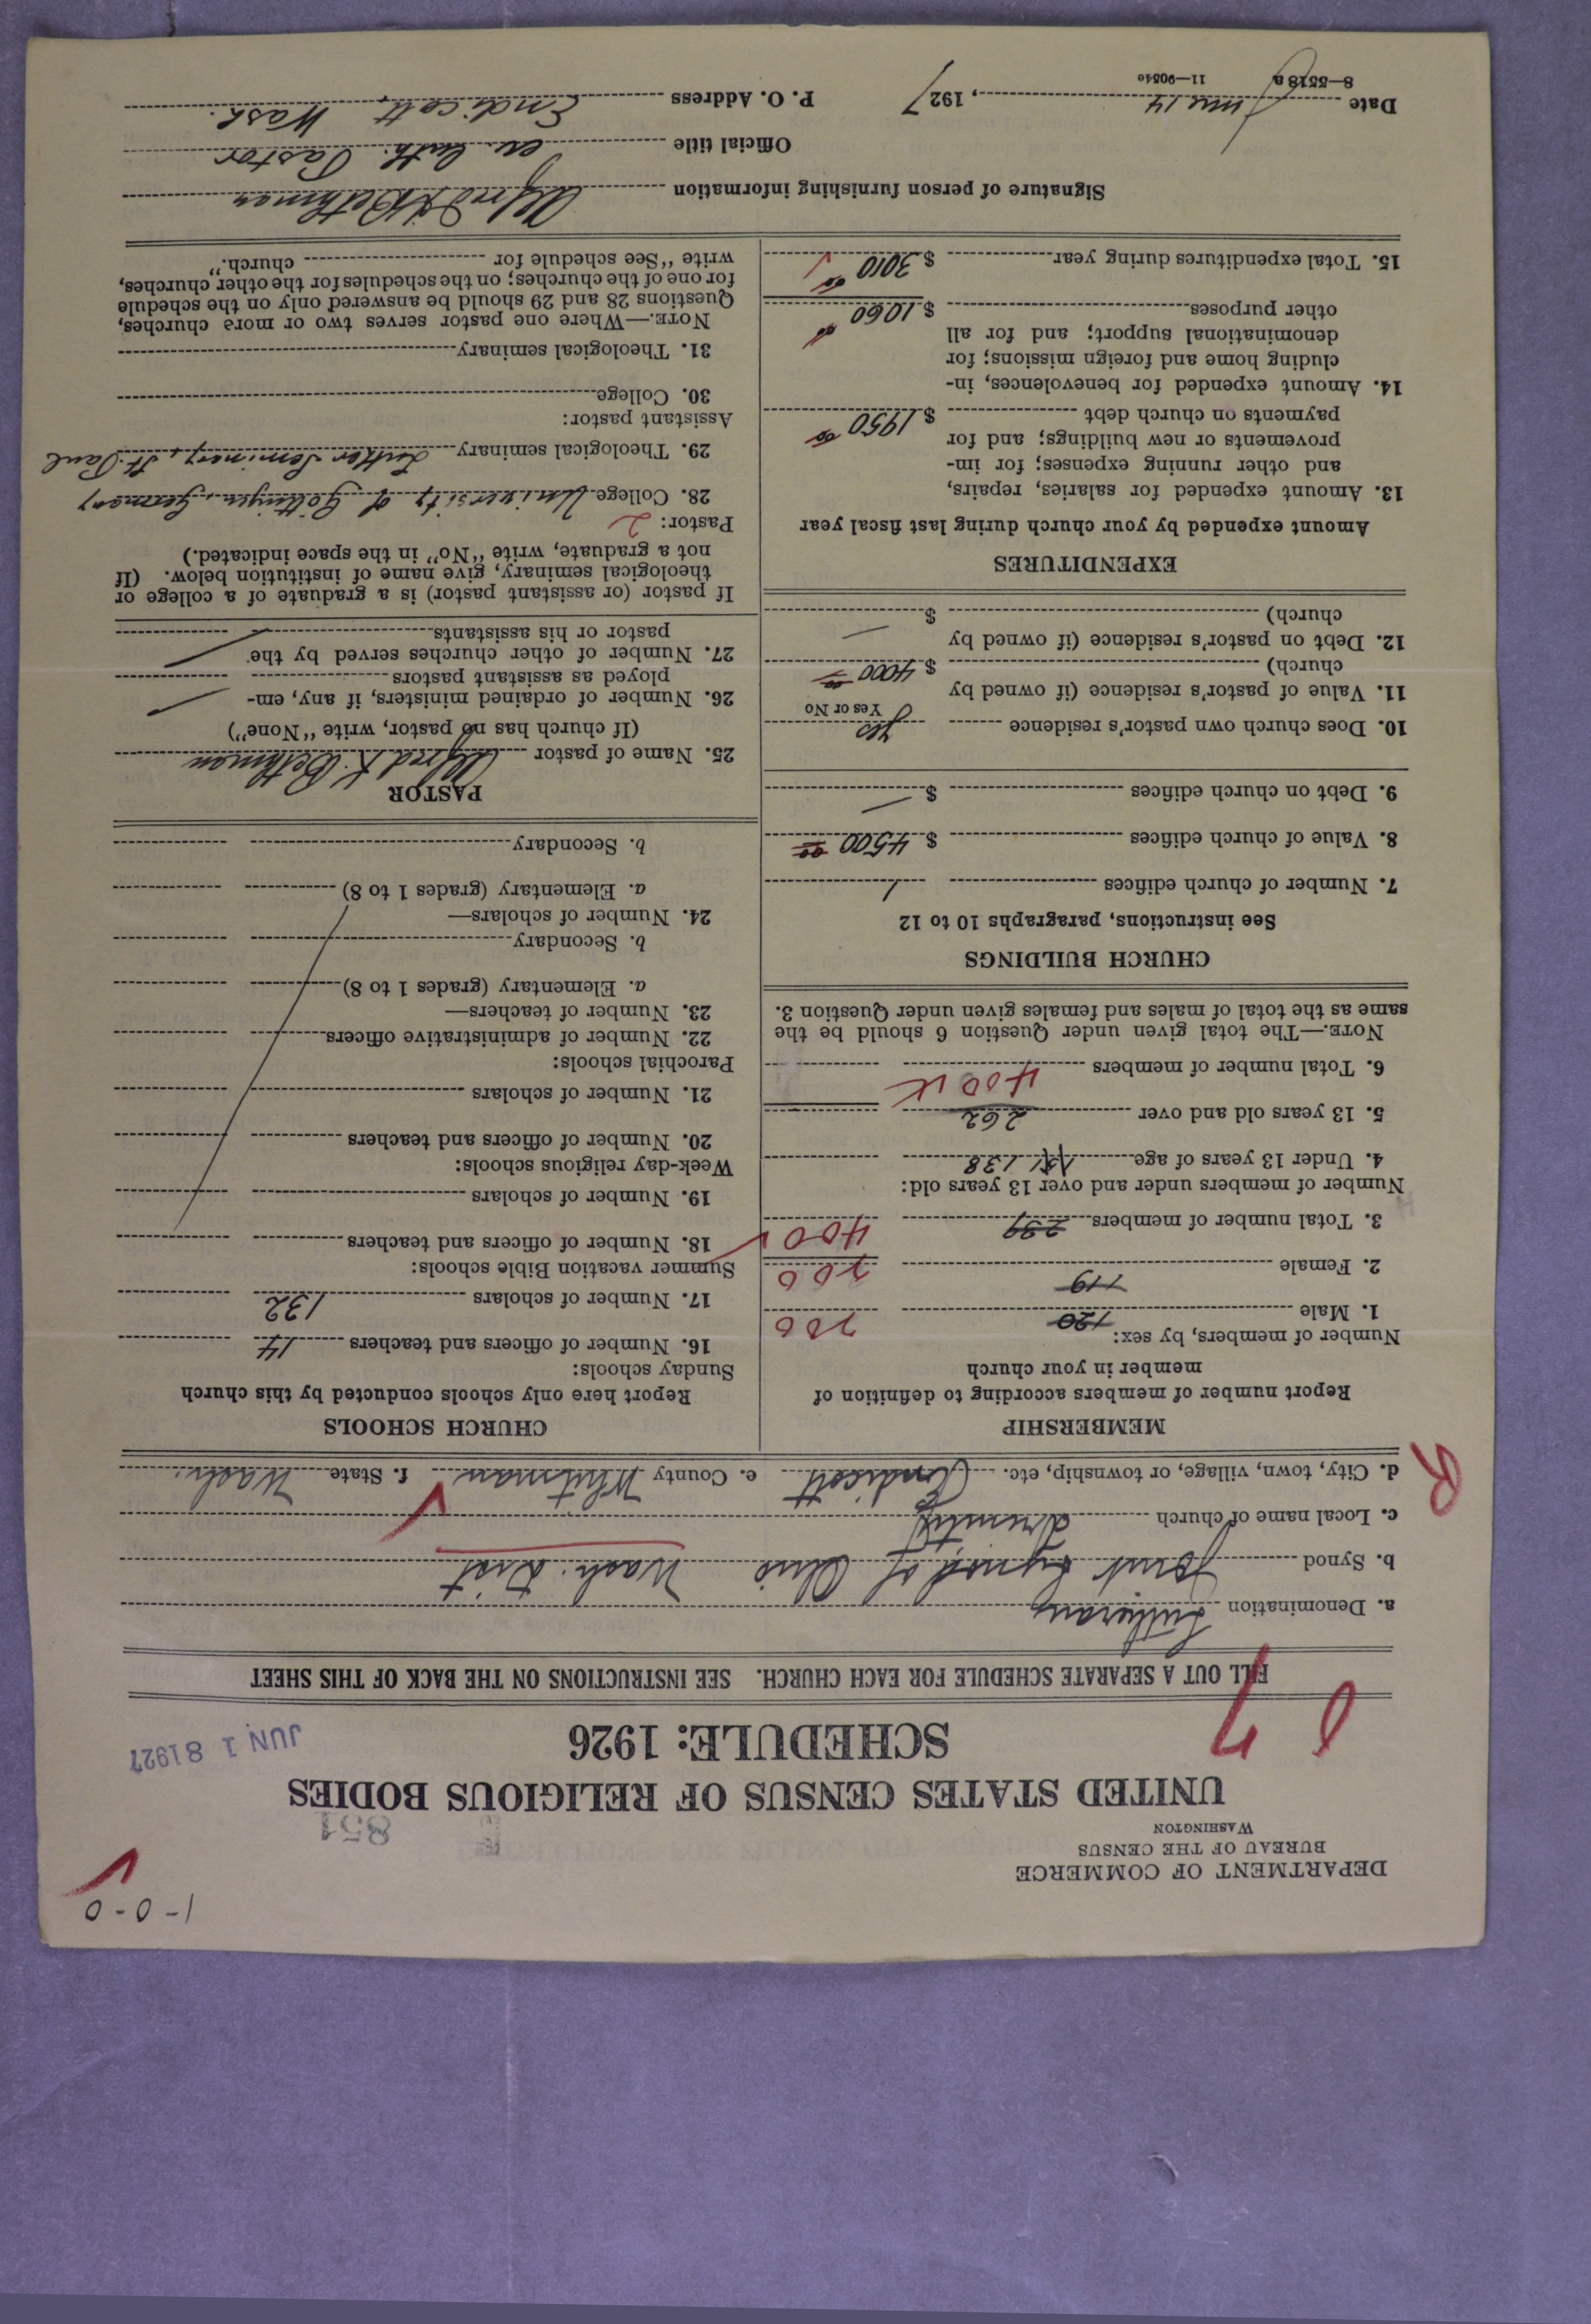 1-0-0
DEPARTMENT OF COMMERCE
BUREAU OF THE CENSUS
WASHINGTON
851
UNITED STATES CENSUS OF RELIGIOUS BODIES
SCHEDULE: 1926
JUN 18 1927
FILL OUT A SEPARATE SCHEDULE FOR EACH CHURCH. SEE INSTRUCTIONS ON THE BACK OF THIS SHEET
a. Denomination Lutheran
b. Synod Joint Synod of Ohio Wash. Dist
c. Local name of church Trinity
d. City, town, village, or township, etc. Endicott e. County Whitman f. State Wash.
R
MEMBERSHIP
Report number of members according to definition of
member in your church
Number of members, by sex:
1. Male 120 200
2. Female 119 200
3. Total number of members 239 400
Number of members under and over 13 years old:
4. Under 13 years of age 138
5. 13 years old and over 262
6. Total number of members 400
NOTE.—The total given under Question 6 should be the
same as the total of males and females given under Question 3.
CHURCH BUILDINGS
See instructions, paragraphs 10 to 12
7. Number of church edifices 1
8. Value of church edifices $ 4500 00
9. Debt on church edifices $ —
10. Does church own pastor's residence yes
Yes or No
11. Value of pastor's residence (if owned by
church) $ 4000 00
12. Debt on pastor's residence (if owned by
church) $ —
EXPENDITURES
Amount expended by your church during last fiscal year
13. Amount expended for salaries, repairs,
and other running expenses; for im-
provements or new buildings; and for
payments on church debt $ 1950 00
14. Amount expended for benevolences, in-
cluding home and foreign missions; for
denominational support; and for all
other purposes $ 1060 00
15. Total expenditures during year $ 3010 00
CHURCH SCHOOLS
Report here only schools conducted by this church
Sunday schools:
16. Number of officers and teachers 14
17. Number of scholars 132
Summer vacation Bible schools:
18. Number of officers and teachers
19. Number of scholars
Week-day religious schools:
20. Number of officers and teachers
21. Number of scholars
Parochial schools:
22. Number of administrative officers
23. Number of teachers—
a. Elementary (grades 1 to 8)
b. Secondary
24. Number of scholars—
a. Elementary (grades 1 to 8)
b. Secondary
PASTOR
25. Name of pastor Alfred K. Bethman
(If church has no pastor, write "None")
26. Number of ordained ministers, if any, em-
ployed as assistant pastors —
27. Number of other churches served by the
pastor or his assistants —
If pastor (or assistant pastor) is a graduate of a college or
theological seminary, give name of institution below. (If
not a graduate, write "No" in the space indicated.)
Pastor: 2
28. College University of Göttingen, Germany
29. Theological seminary Luther Seminary, St. Paul
Assistant pastor:
30. College
31. Theological seminary
NOTE.—Where one pastor serves two or more churches,
Questions 28 and 29 should be answered only on the schedule
for one of the churches; on the schedules for the other churches,
write "See schedule for church."
Signature of person furnishing information Alfred K Bethman
Official title ev. luth. Pastor
Date June 14, 1927 P. O. Address Endicott, Wash.
8—5518a 11—9054c